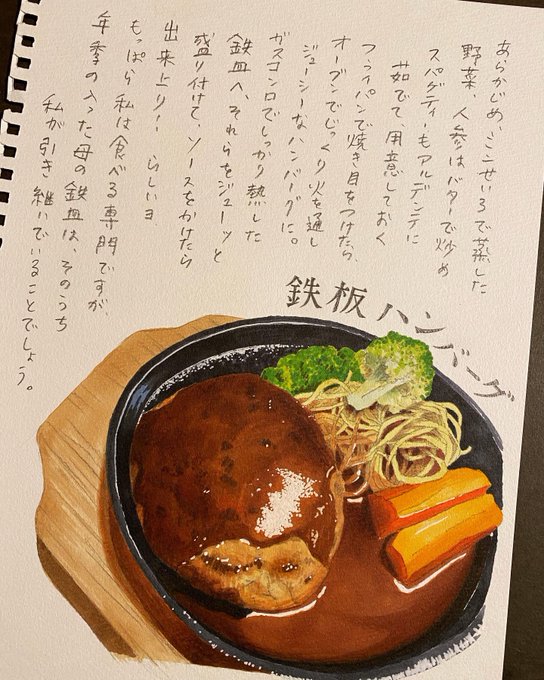 あらかじめ、ミニせいろで蒸した
野菜、人参はバターで炒め
スパゲティーもアルデンテに
茹でて、用意しておく
フライパンで焼き目をつけたら、
オーブンでじっくり火を通し
ジューシーなハンバーグに。
ガスコンロでしっかり熱した
鉄皿へ、それらをジューッと
盛り付けて、ソースをかけたら
出来上り！ らしいヨ
もっぱら私は食べる専門ですが、
年季の入った母の鉄皿は、そのうち
私が引き継いでいることでしょう。
鉄板ハンバーグ